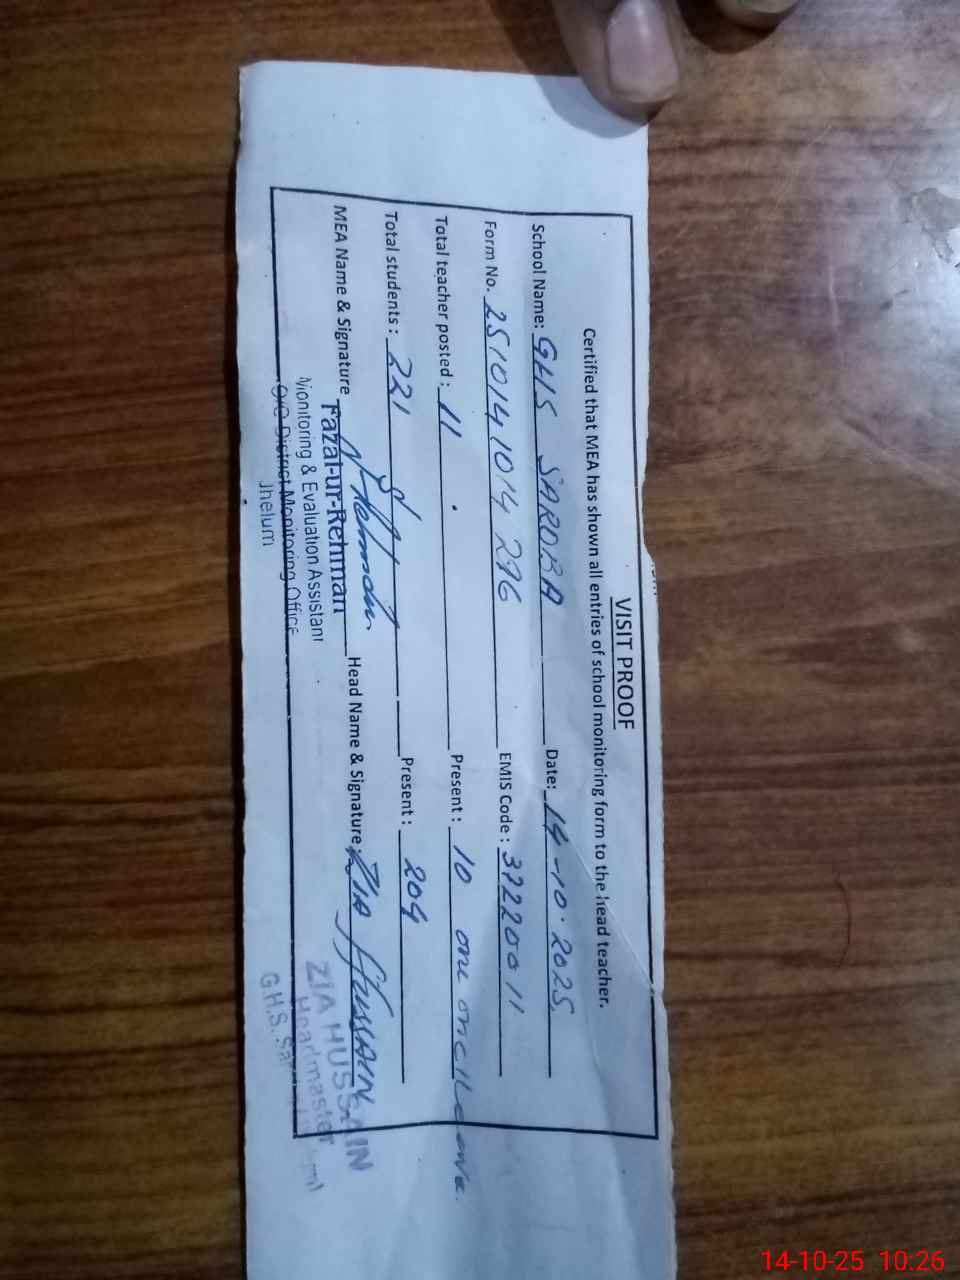 VISIT PROOF
Certified that MEA has shown all entries of school monitoring form to the head teacher.
School Name: GHS SAROBA Date: 14-10-2025
Form No. 2510141014296 EMIS Code: 37220011
Total teacher posted: 11 Present: 10 one on C leave
Total students: 221 Present: 204
MEA Name & Signature Head Name & Signature ZIA HUSSAIN
Fazal-ur-Rehman
Monitoring & Evaluation Assistant
O/O District Monitoring Office
Jhelum
ZIA HUSSAIN
Headmaster
G.H.S.
14-10-25 10:26